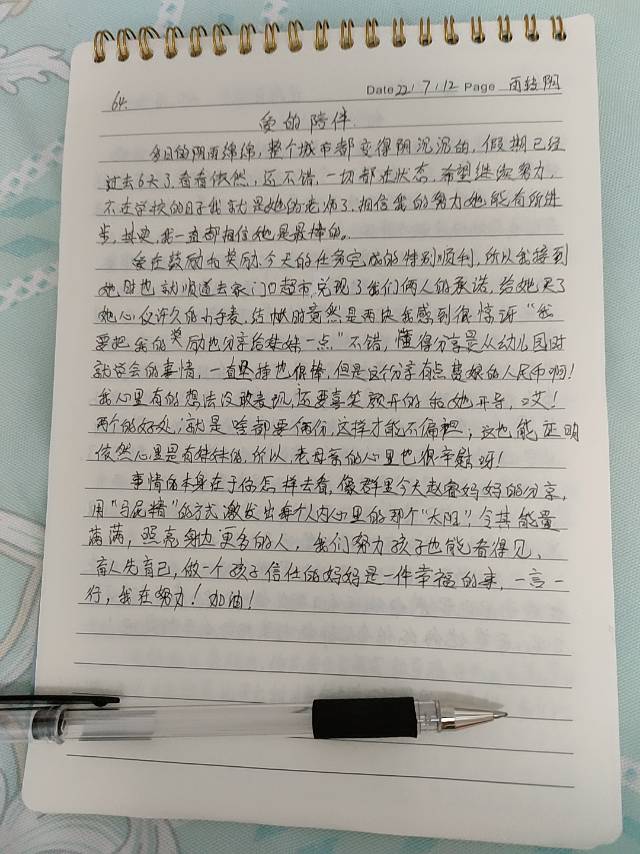 64.
Date 22/7/12 Page 雨转阴
爱的陪伴
多日的阴雨绵绵,整个城市都变得阴沉沉的,假期已经
过去6天了,看看依然,还不错,一切都在状态,希望继续努力,
不在学校的日子我就是她的老师了,相信我的努力她能有所进
步,其实,我一直都相信她是最棒的。
爱在鼓励和奖励,今天的任务完成的特别顺利,所以我接到
她时也就顺道去家门口超市,兑现了我们俩人的承诺,给她买了
她心仪许久的小手表,结帐时竟然是两块我感到很惊讶"我
要把我的奖励也分享给妹妹一点"不错,懂得分享是从幼儿园时
就学会的事情,一直坚持也很棒,但是这个分享有点费娘的人民币啊!
我心里有的想法没敢表现,还要喜笑颜开的和她开导,哎!
两个的好处,就是啥都要俩份,这样才能不偏袒;这也能证明
依然心里是有妹妹的,所以,老母亲的心里也很幸福呀!
事情的本身在于你怎样去看,像群里今天赵睿妈妈的分享,
用"马屁精"的方式,激发出每个人内心里的那个"太阳",令其能量
满满,照亮身边更多的人,我们努力孩子也能看得见,
育人先育己,做一个孩子信任的妈妈是一件幸福的事,一言一
行,我在努力!加油!